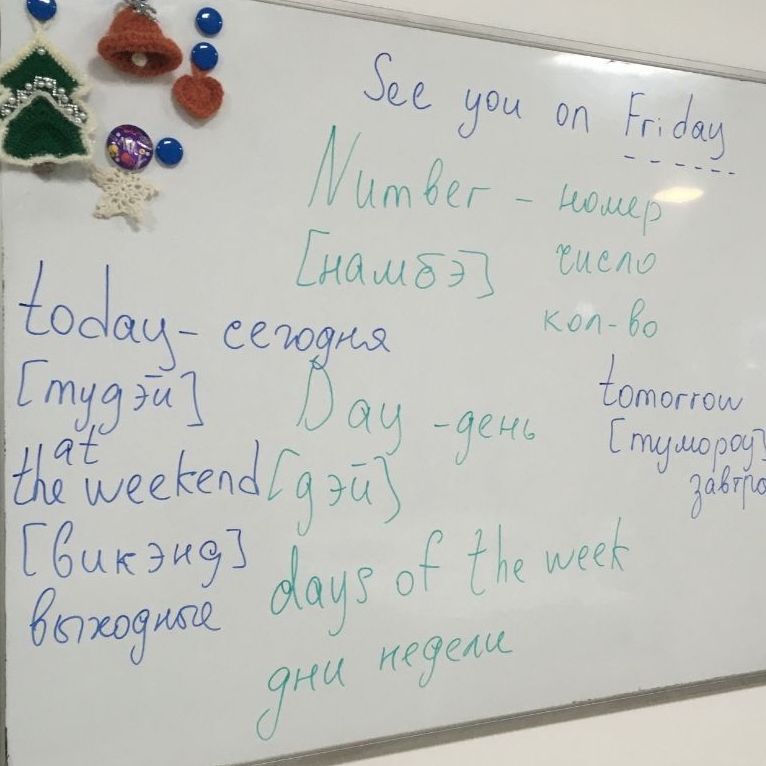 See you on Friday
Number - номер
[намбэ] число
кол-во
today - сегодня
[тудэй]
at
the weekend
[викэнд]
выходные
Day - день
[дэй]
days of the week
дни недели
tomorrow
[тумороу]
завтра